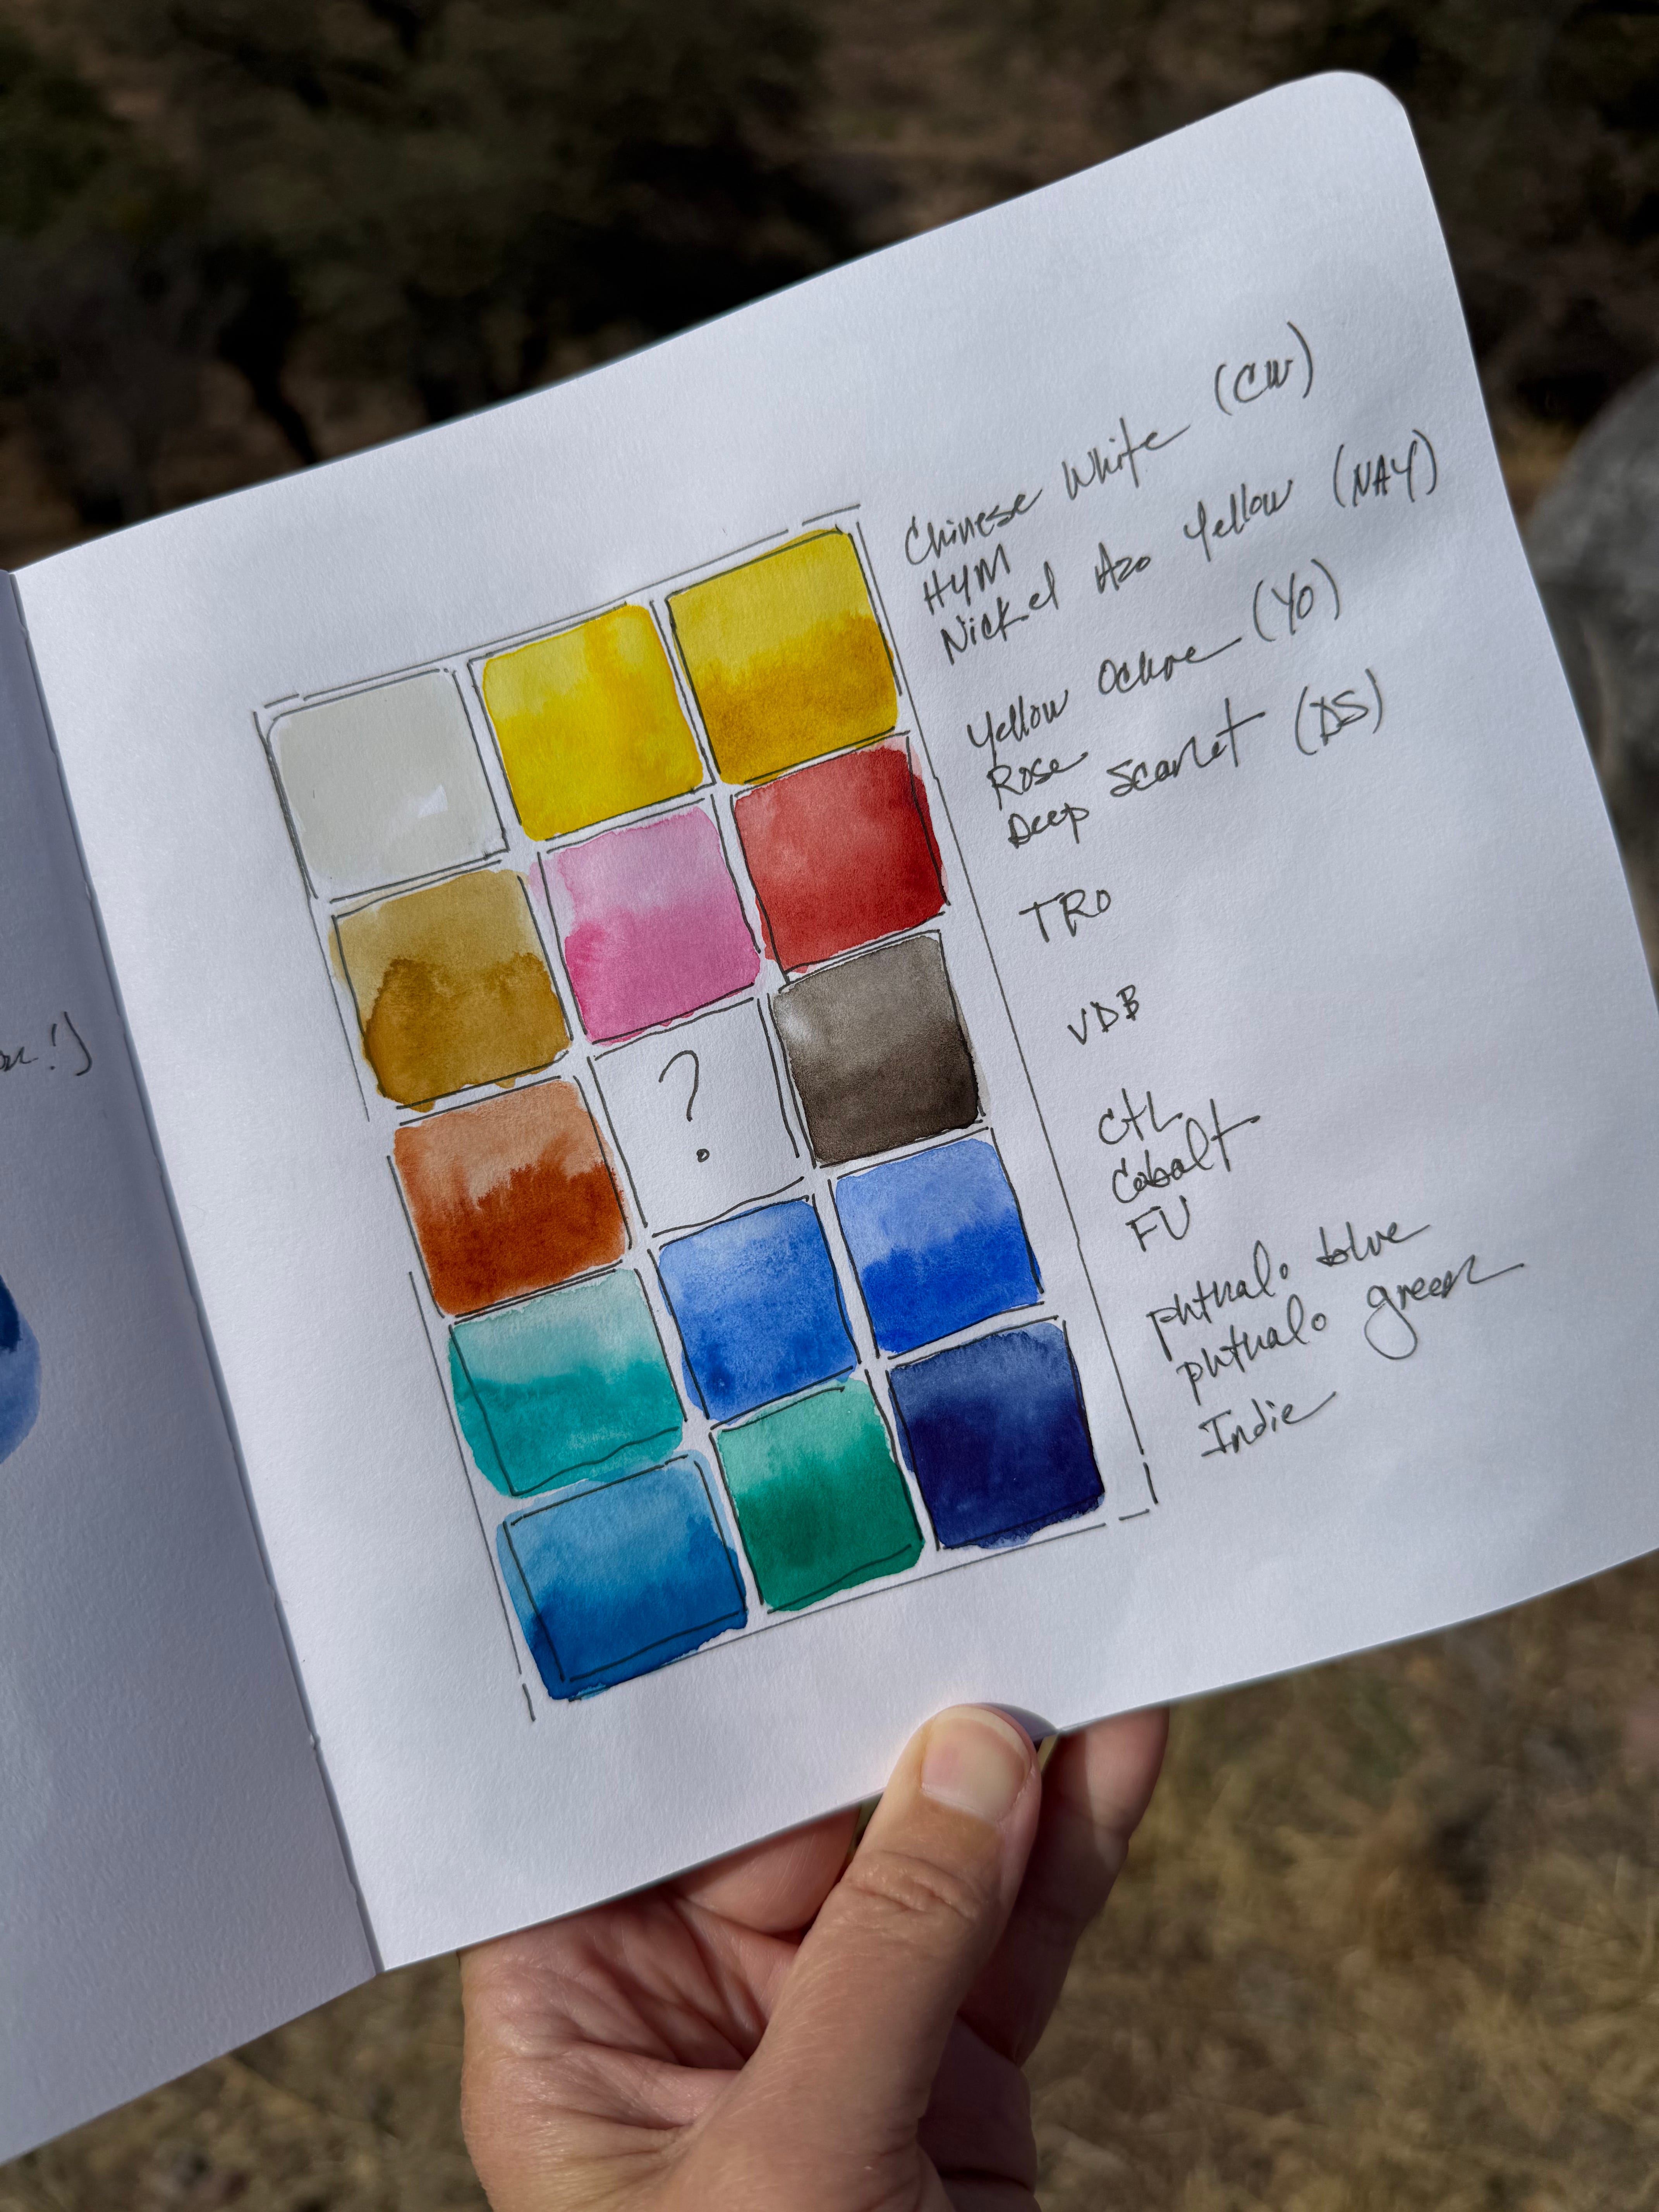 Chinese White (CW)
HYM
Nickel Azo Yellow (NAY)
Yellow Ochre (YO)
Rose
Deep Scarlet (DS)
TRO
?
VDB
CTL
Cobalt
FU
phthalo blue
phthalo green
Indie